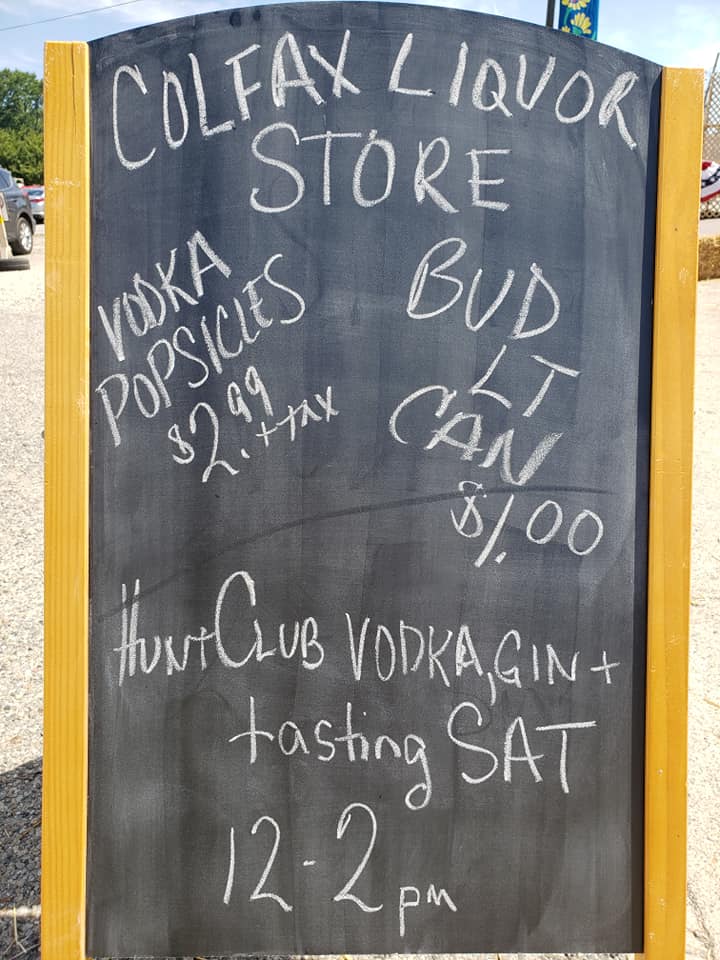 COLFAX LIQUOR
STORE
VODKA
POPSICLES
$2.99 + TAX
BUD
LT
CAN
$1.00
HUNT CLUB VODKA, GIN +
tasting SAT
12-2 pm